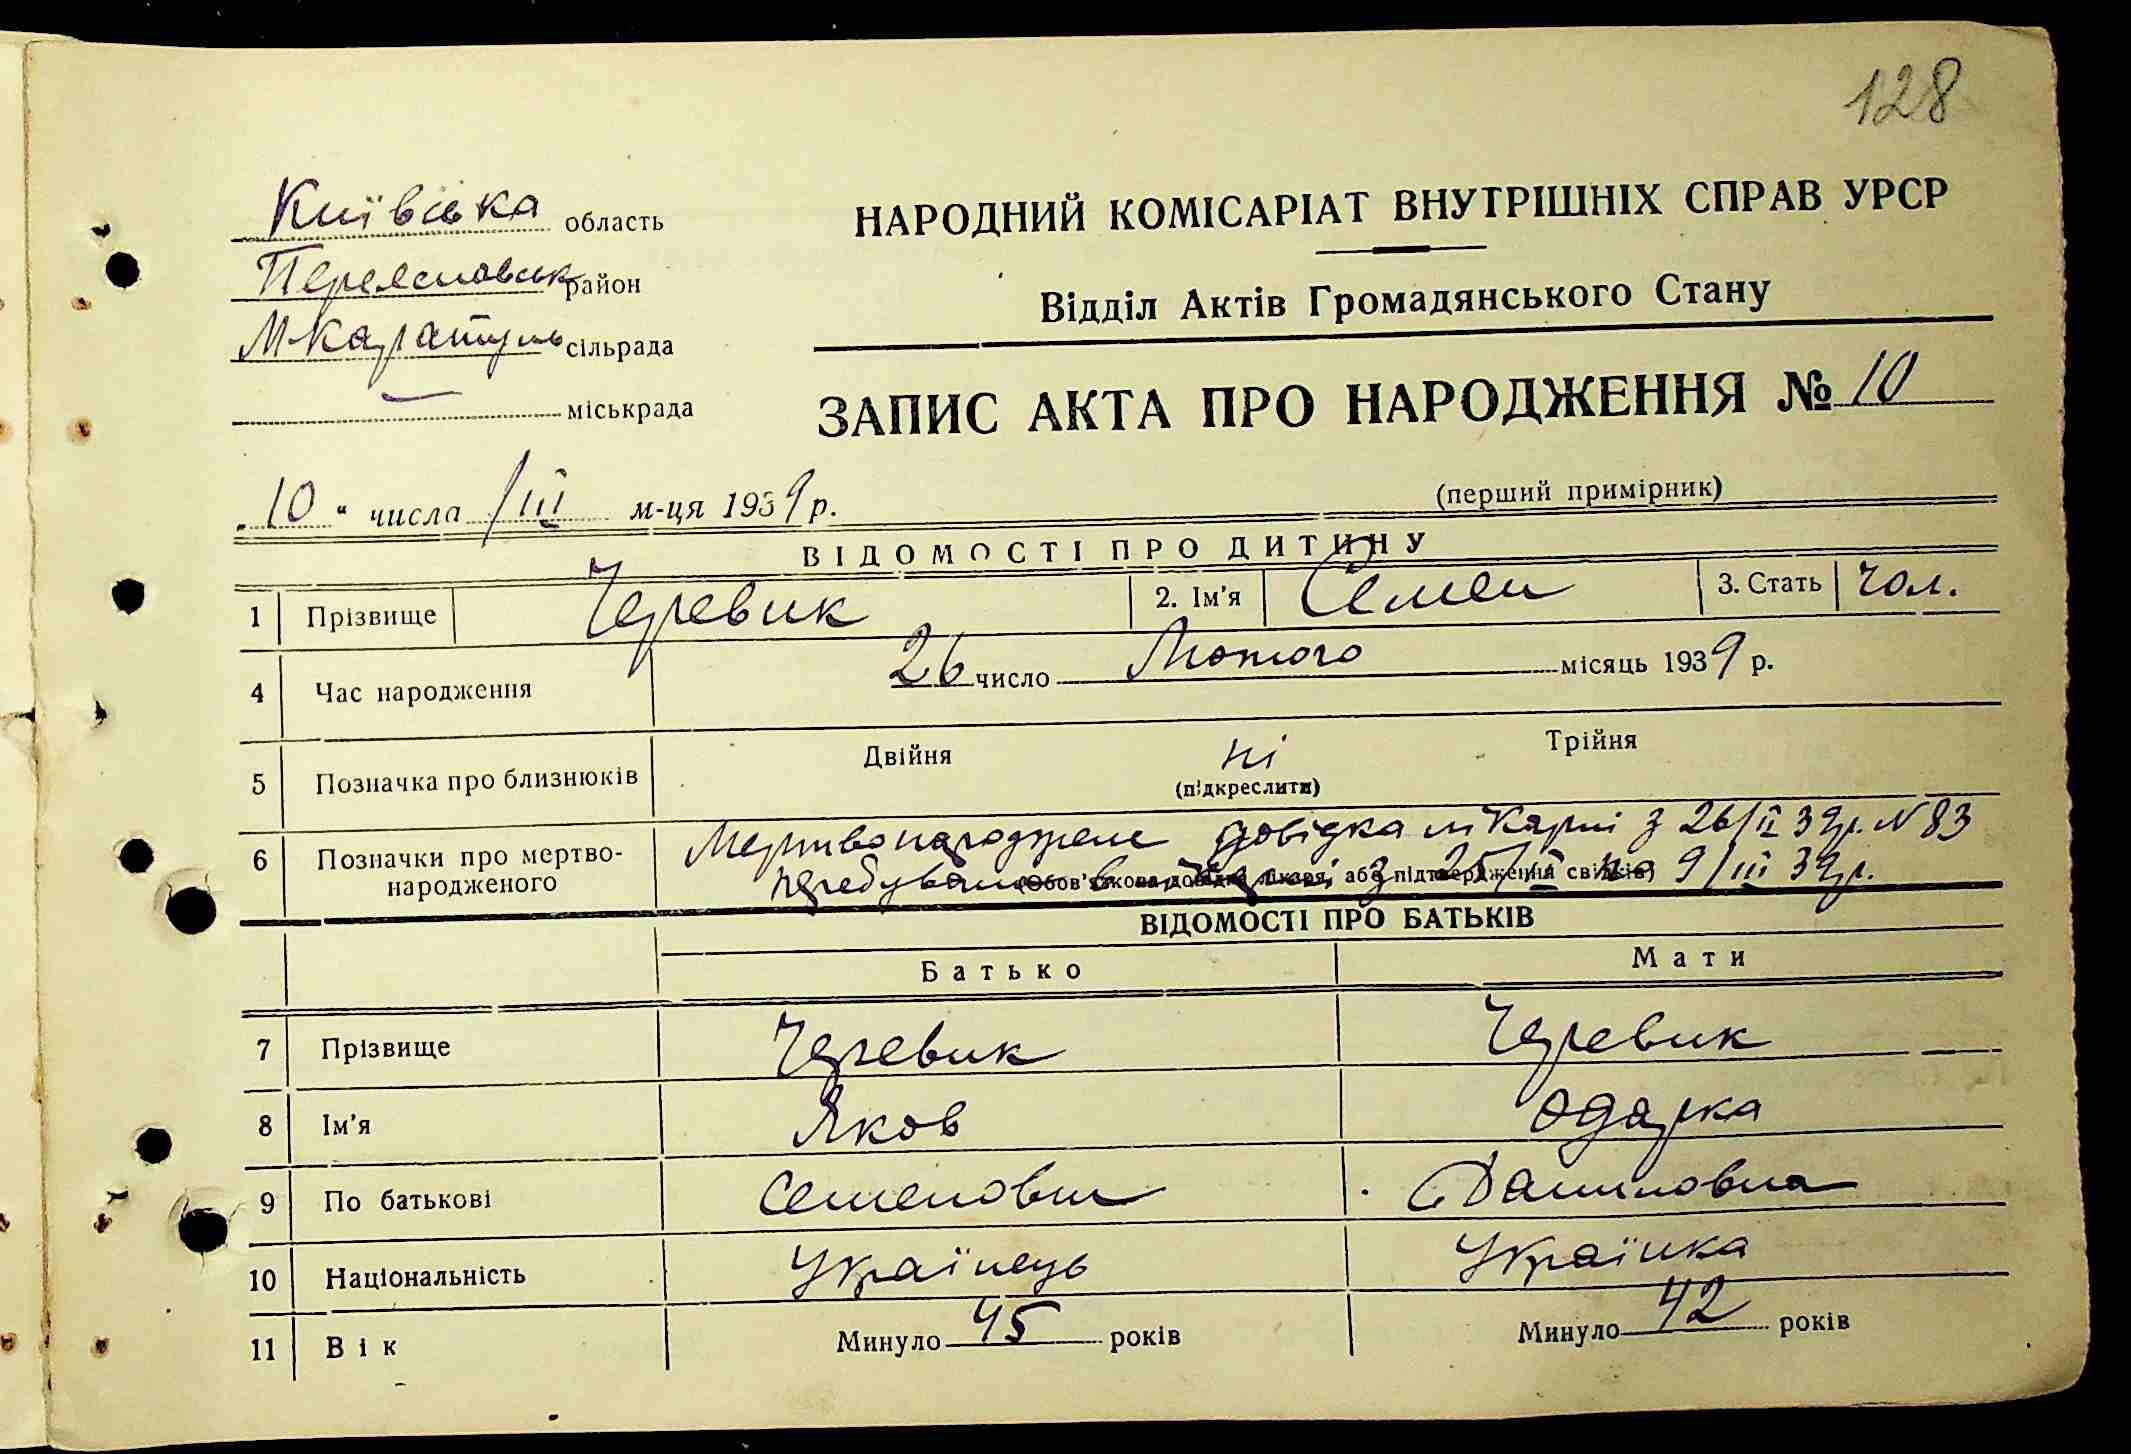 128
Київська область
Переяславськ район
М Каратуль сільрада
міськрада
НАРОДНИЙ КОМІСАРІАТ ВНУТРІШНІХ СПРАВ УРСР
Відділ Актів Громадянського Стану
ЗАПИС АКТА ПРО НАРОДЖЕННЯ № 10
„10“ числа /III м-ця 1939 р.
(перший примірник)
ВІДОМОСТІ ПРО ДИТИНУ
1 Прізвище Черевик 2. Ім'я Семен 3. Стать чол.
4 Час народження 26 число Лютого місяць 1939 р.
5 Позначка про близнюків Двійня ні Трійня
(підкреслити)
6 Позначки про мертвонародженого Мертвонароджене довідка лікарні з 26/II 39р. N 83
(Обов'язкова довідка лікаря, або підтвердження свідків)
з 25/II по 9/III 39р.
ВІДОМОСТІ ПРО БАТЬКІВ
Батько Мати
7 Прізвище Черевик Черевик
8 Ім'я Яков Одарка
9 По батькові Семенович Даниловна
10 Національність Українець Українка
11 Вік Минуло 45 років Минуло 42 років